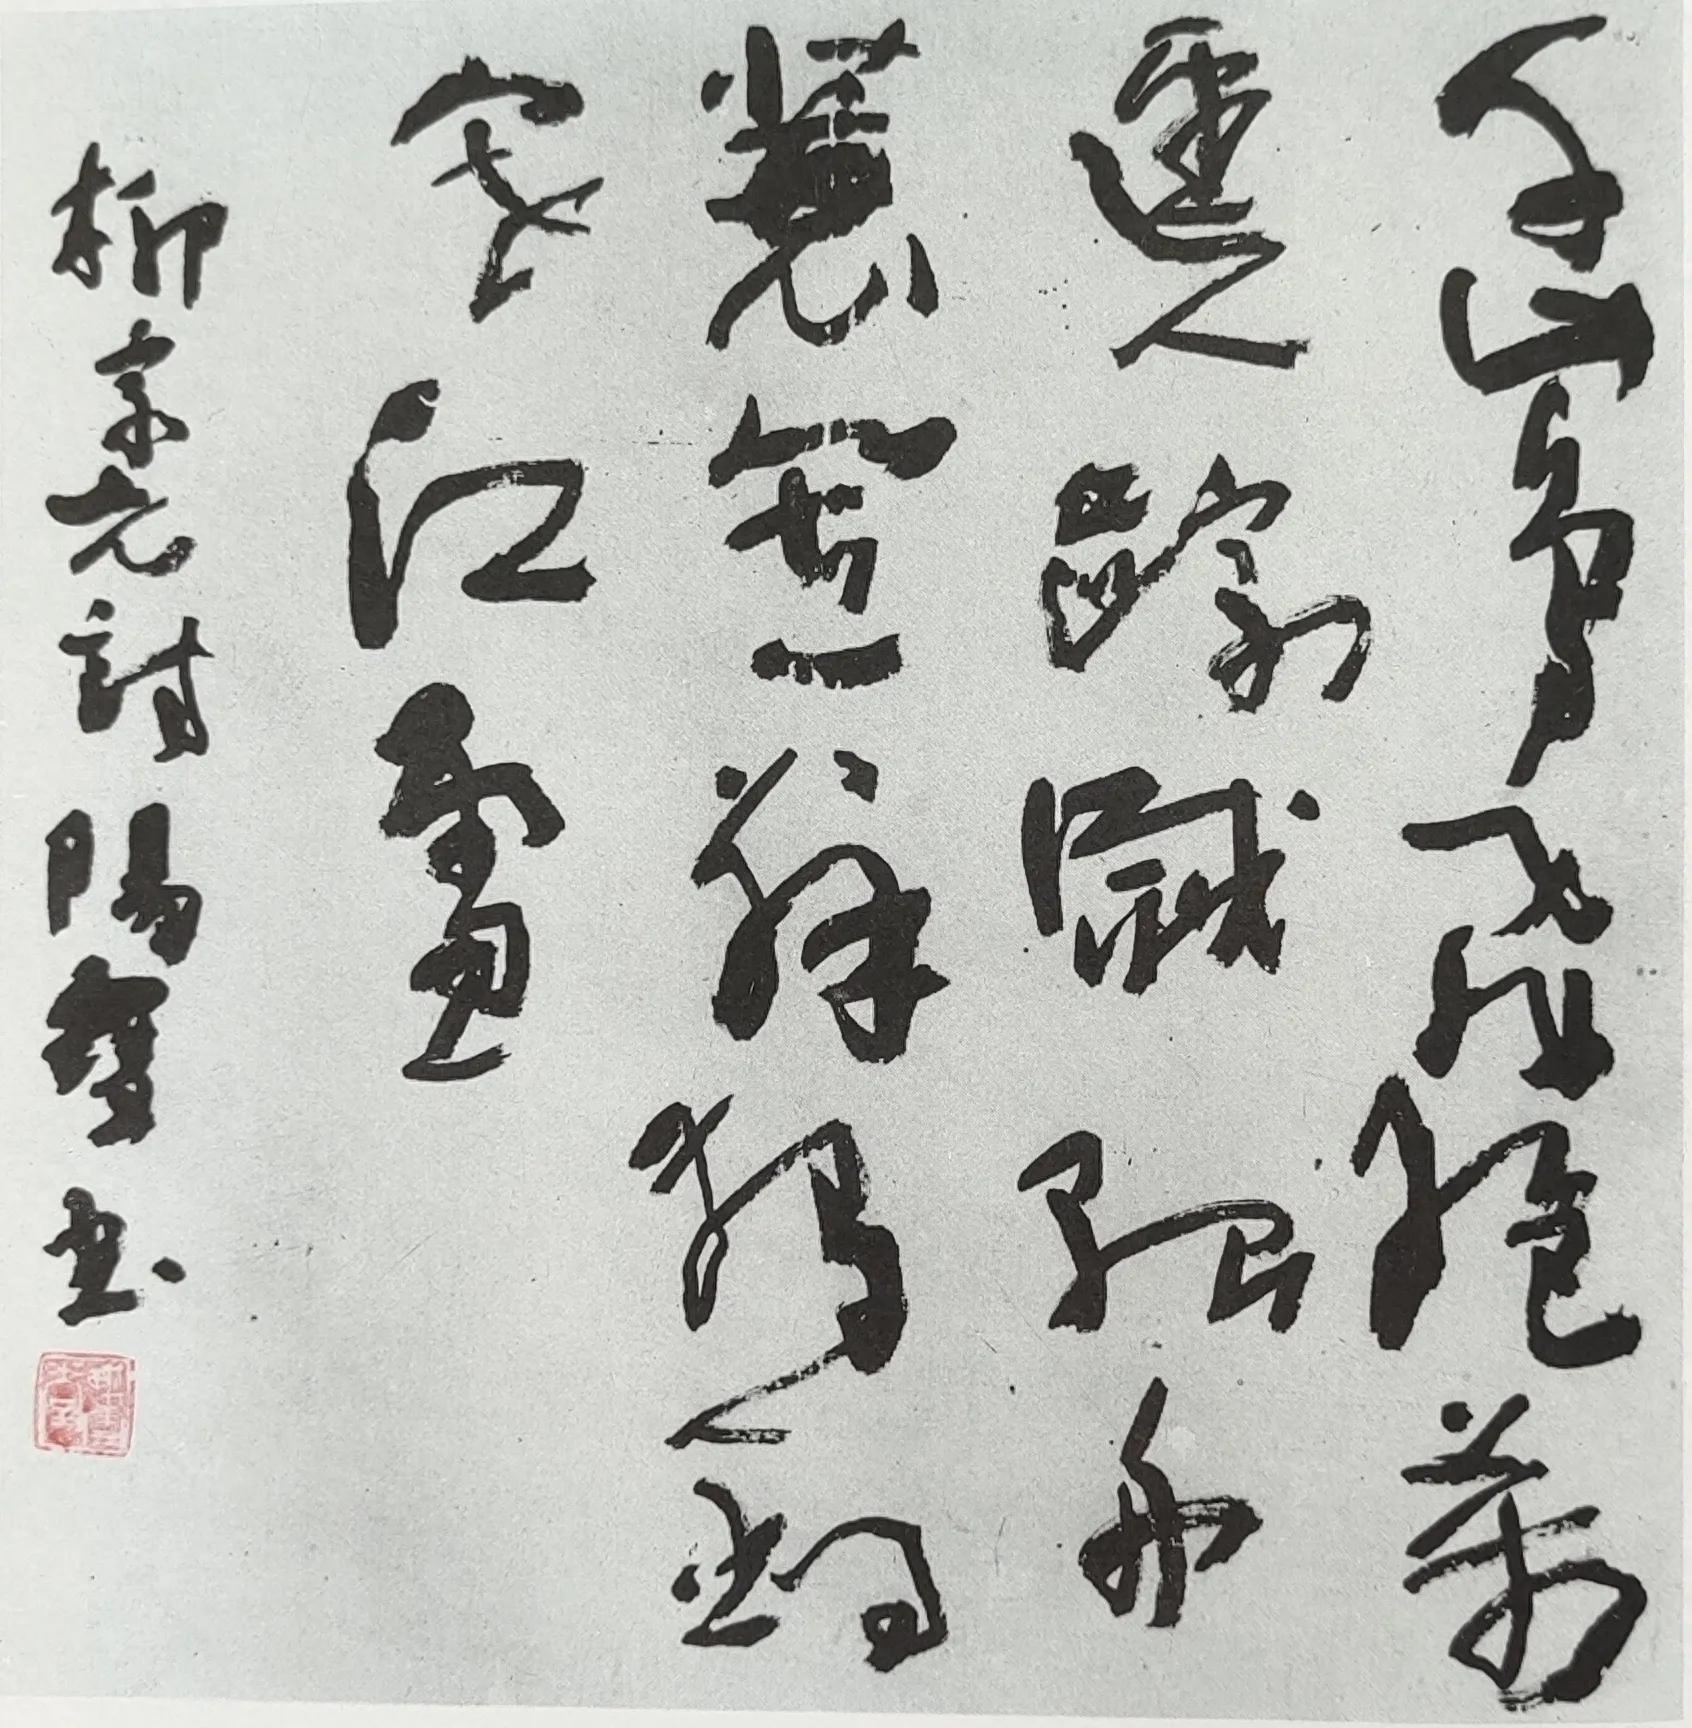 千山鳥飛絕萬
逕人蹤滅孤舟
蓑笠翁獨釣
寒江雪
柳宗元詩 陽 書